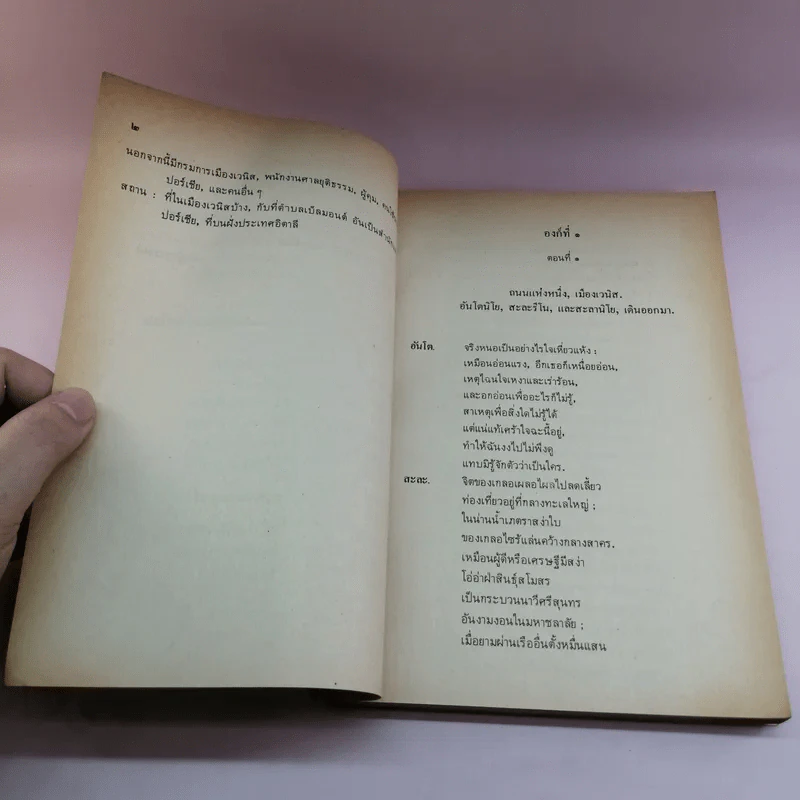 ๒
นอกจากนี้มีกรมการเมืองเวนิส, พนักงานศาลยุติธรรม, ผู้คุม,
ปอร์เชีย, และคนอื่น ๆ
สถาน : ที่ในเมืองเวนิสบ้าง, กับที่ตำบลเบ็ลมอนต์ อันเป็นสำนัก
ปอร์เชีย, ที่บนฝั่งประเทศอิตาลี
องก์ที่ ๑
ตอนที่ ๑
ถนนแห่งหนึ่ง, เมืองเวนิส.
อันโตนิโย, สะละรีโน, และสะลานิโย, เดินออกมา.
อันโต. จริงหนอเป็นอย่างไรใจเหี่ยวแห้ง :
เหมือนอ่อนแรง, อีกเธอก็เหนื่อยอ่อน,
เหตุไฉนใจเหงาและเร่าร้อน,
และอกอ่อนเพื่ออะไรก็ไม่รู้,
สาเหตุเพื่อสิ่งใดไม่รู้ได้
แต่แน่แท้เศร้าใจฉะนี้อยู่,
ทำให้ฉันงงไปไม่พึงดู
แทบมิรู้จักตัวว่าเป็นใคร.
สะละ. จิตของเกลอเผลอไผลไปลดเลี้ยว
ท่องเที่ยวอยู่ที่กลางทะเลใหญ่ ;
ในน่านน้ำเภตราสง่าใบ
ของเกลอไซร้แล่นคว้างกลางสาคร.
เหมือนผู้ดีหรือเศรษฐีมีสง่า
โอ่อ่าฝ่าสินธุ์สโมสร
เป็นกระบวนนาวีศรีสุนทร
อันงามงอนในมหาชลาลัย ;
เมื่อยามผ่านเรืออื่นตั้งหมื่นแสน